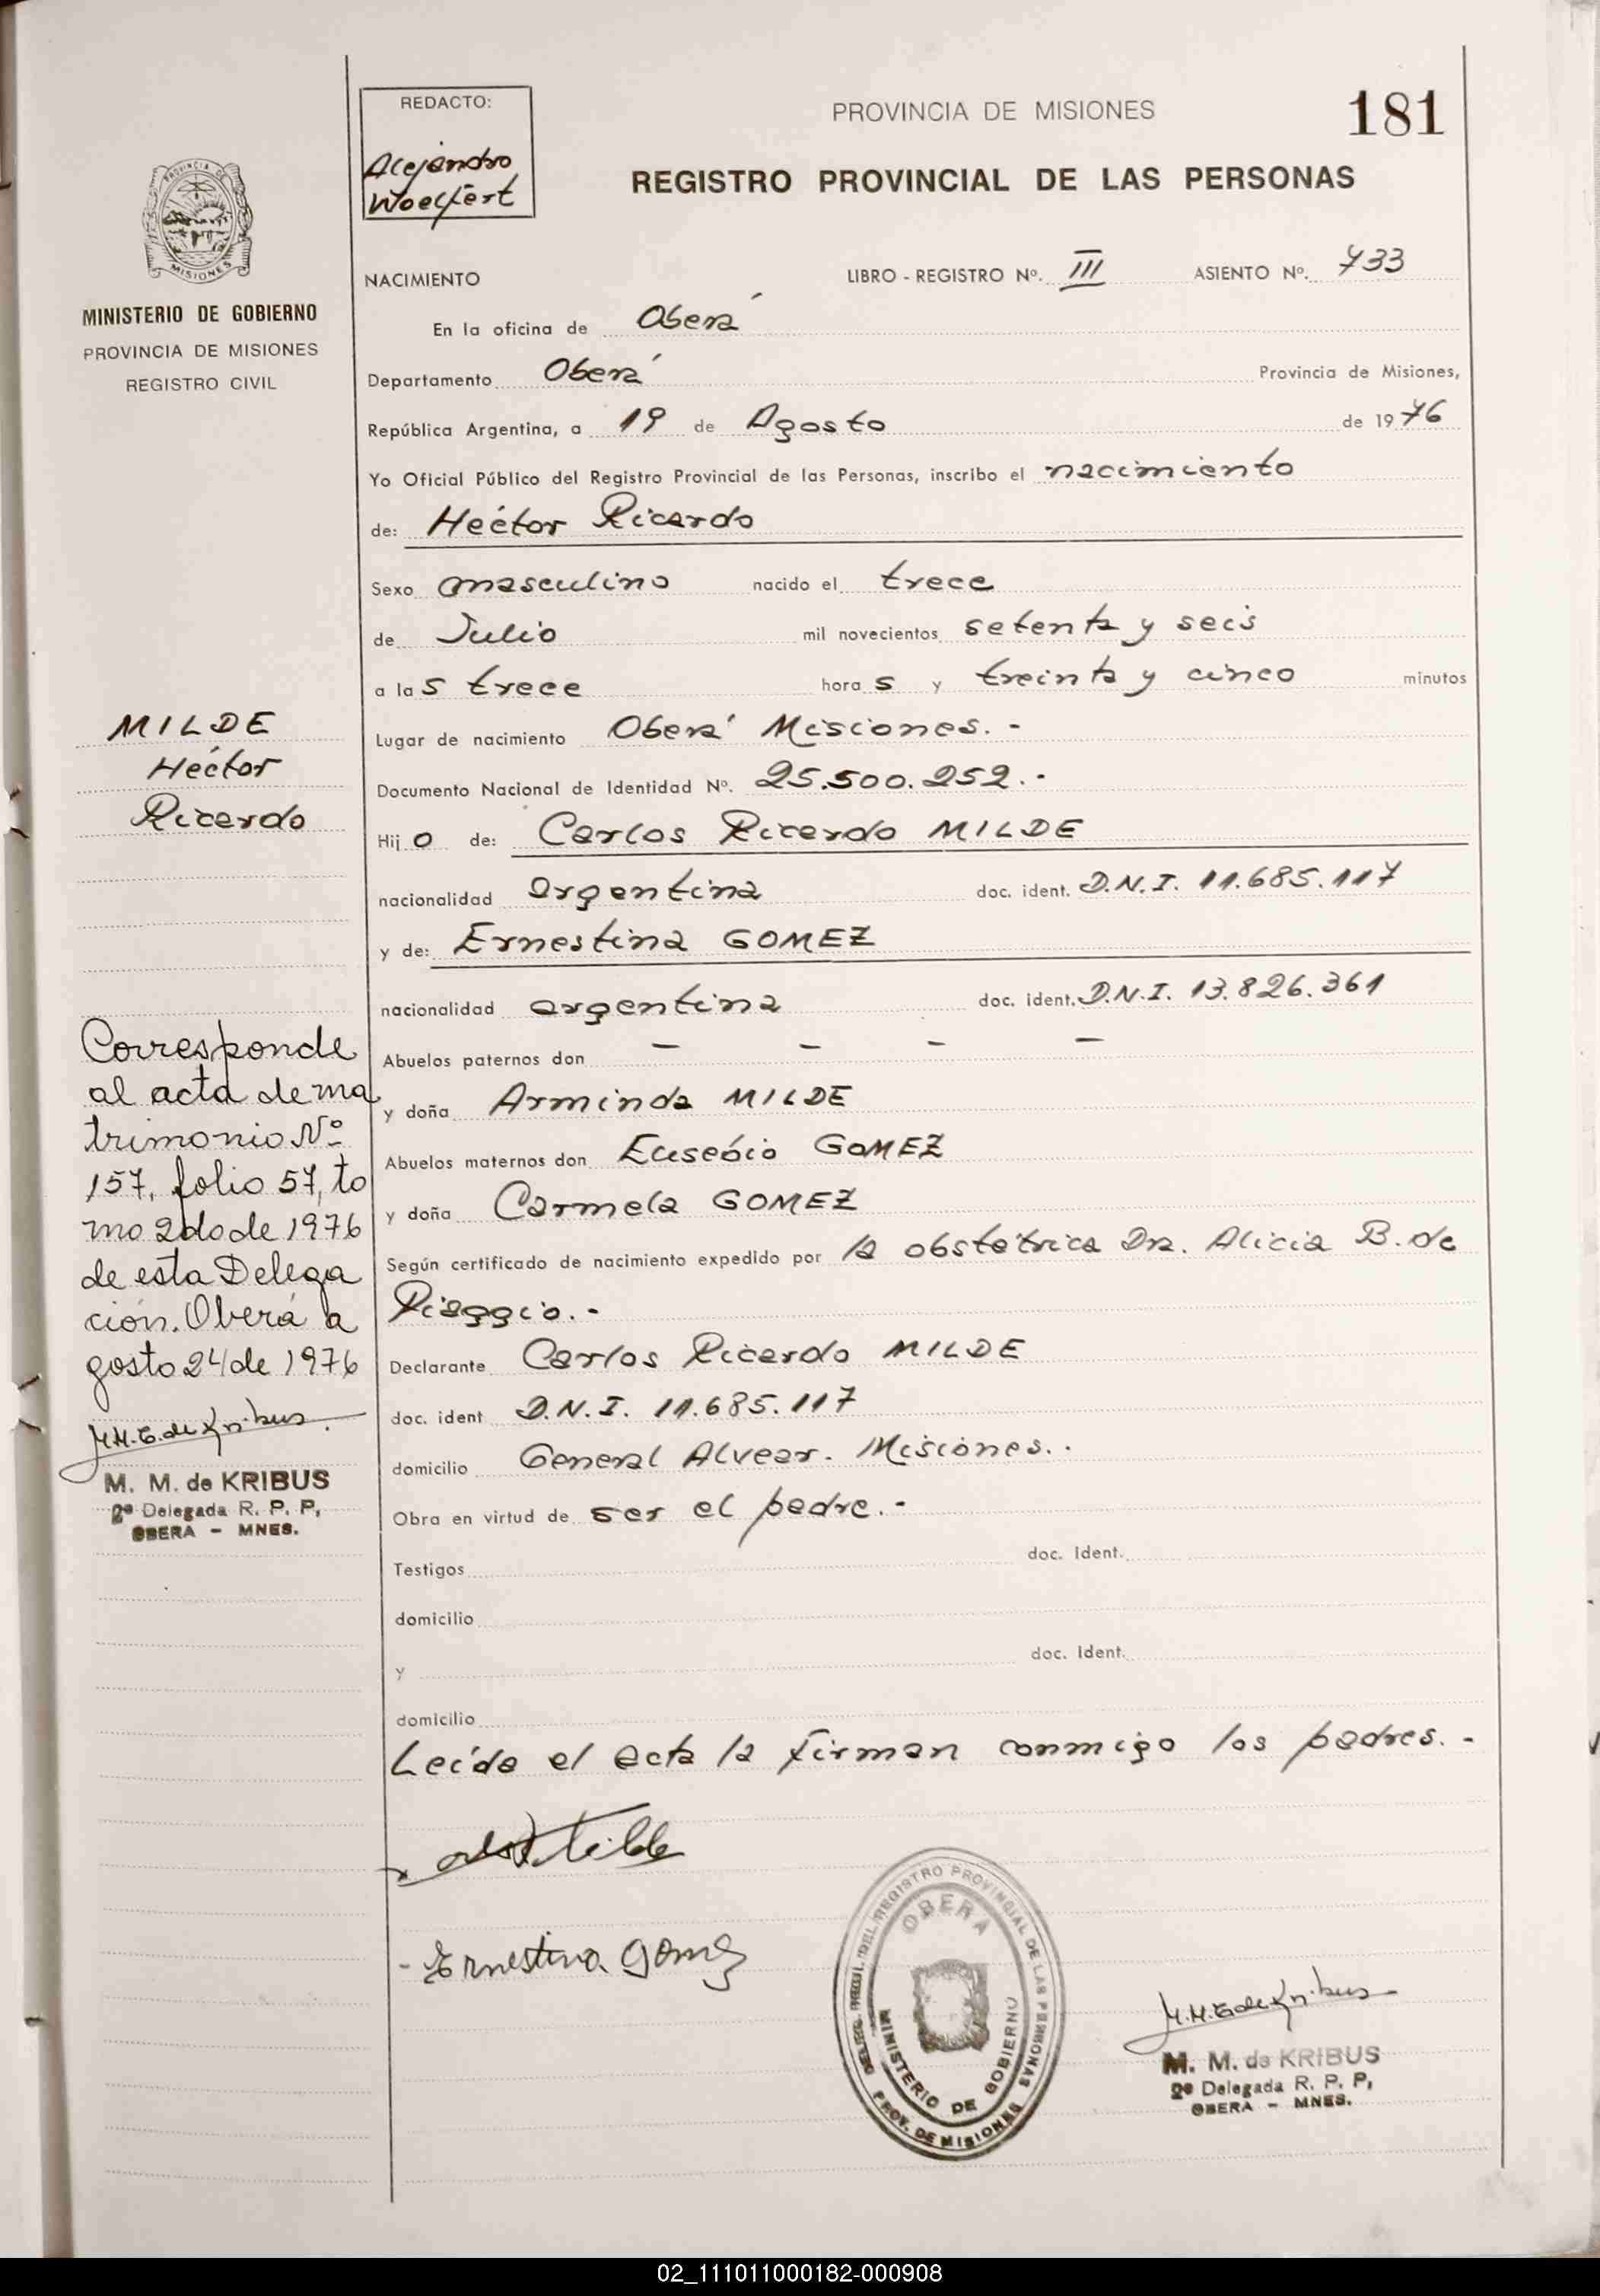 REDACTO:
Alejandro
Woelfert
PROVINCIA DE MISIONES
181
REGISTRO PROVINCIAL DE LAS PERSONAS
PROVINCIA DE
MISIONES
MINISTERIO DE GOBIERNO
PROVINCIA DE MISIONES
REGISTRO CIVIL
NACIMIENTO LIBRO - REGISTRO Nº. III ASIENTO Nº. 733
En la oficina de Oberá
Departamento Oberá Provincia de Misiones,
República Argentina, a 19 de Agosto de 1976
Yo Oficial Público del Registro Provincial de las Personas, inscribo el nacimiento
de: Héctor Ricardo
Sexo masculino nacido el trece
de Julio mil novecientos setenta y seis
a las trece horas y treinta y cinco minutos
Lugar de nacimiento Oberá Misiones.-
Documento Nacional de Identidad Nº. 25.500.252.-
Hijo de: Carlos Ricardo MILDE
nacionalidad argentina doc. ident. D.N.I. 11.685.117
y de: Ernestina GOMEZ
nacionalidad argentina doc. ident. D.N.I. 13.826.361
Abuelos paternos don - - - -
y doña Arminda MILDE
Abuelos maternos don Eusebio GOMEZ
y doña Carmela GOMEZ
Según certificado de nacimiento expedido por la obstétrica Dra. Alicia B. de
Piaggio.-
Declarante Carlos Ricardo MILDE
doc. ident D.N.I. 11.685.117
domicilio General Alvear. Misiones..
Obra en virtud de ser el padre.-
Testigos doc. ident.
domicilio
y doc. ident.
domicilio
Leída el acta la firman conmigo los padres.-
MILDE
Héctor
Ricardo
Corresponde
al acta de ma
trimonio Nº
157, folio 57, to
mo 2do de 1976
de esta Delega
ción. Oberá a
gosto 24 de 1976
M.M.E. de Kribus
M. M. de KRIBUS
2ª Delegada R. P. P,
OBERA - MNES.
- Ernestina Gomez
REGISTRO PROVINCIAL DE LAS PERSONAS
OBERA
MINISTERIO DE GOBIERNO
PROV. DE MISIONES
M.M.E de Kribus
M. M. de KRIBUS
2ª Delegada R. P. P,
OBERA - MNES.
02_111011000182-000908